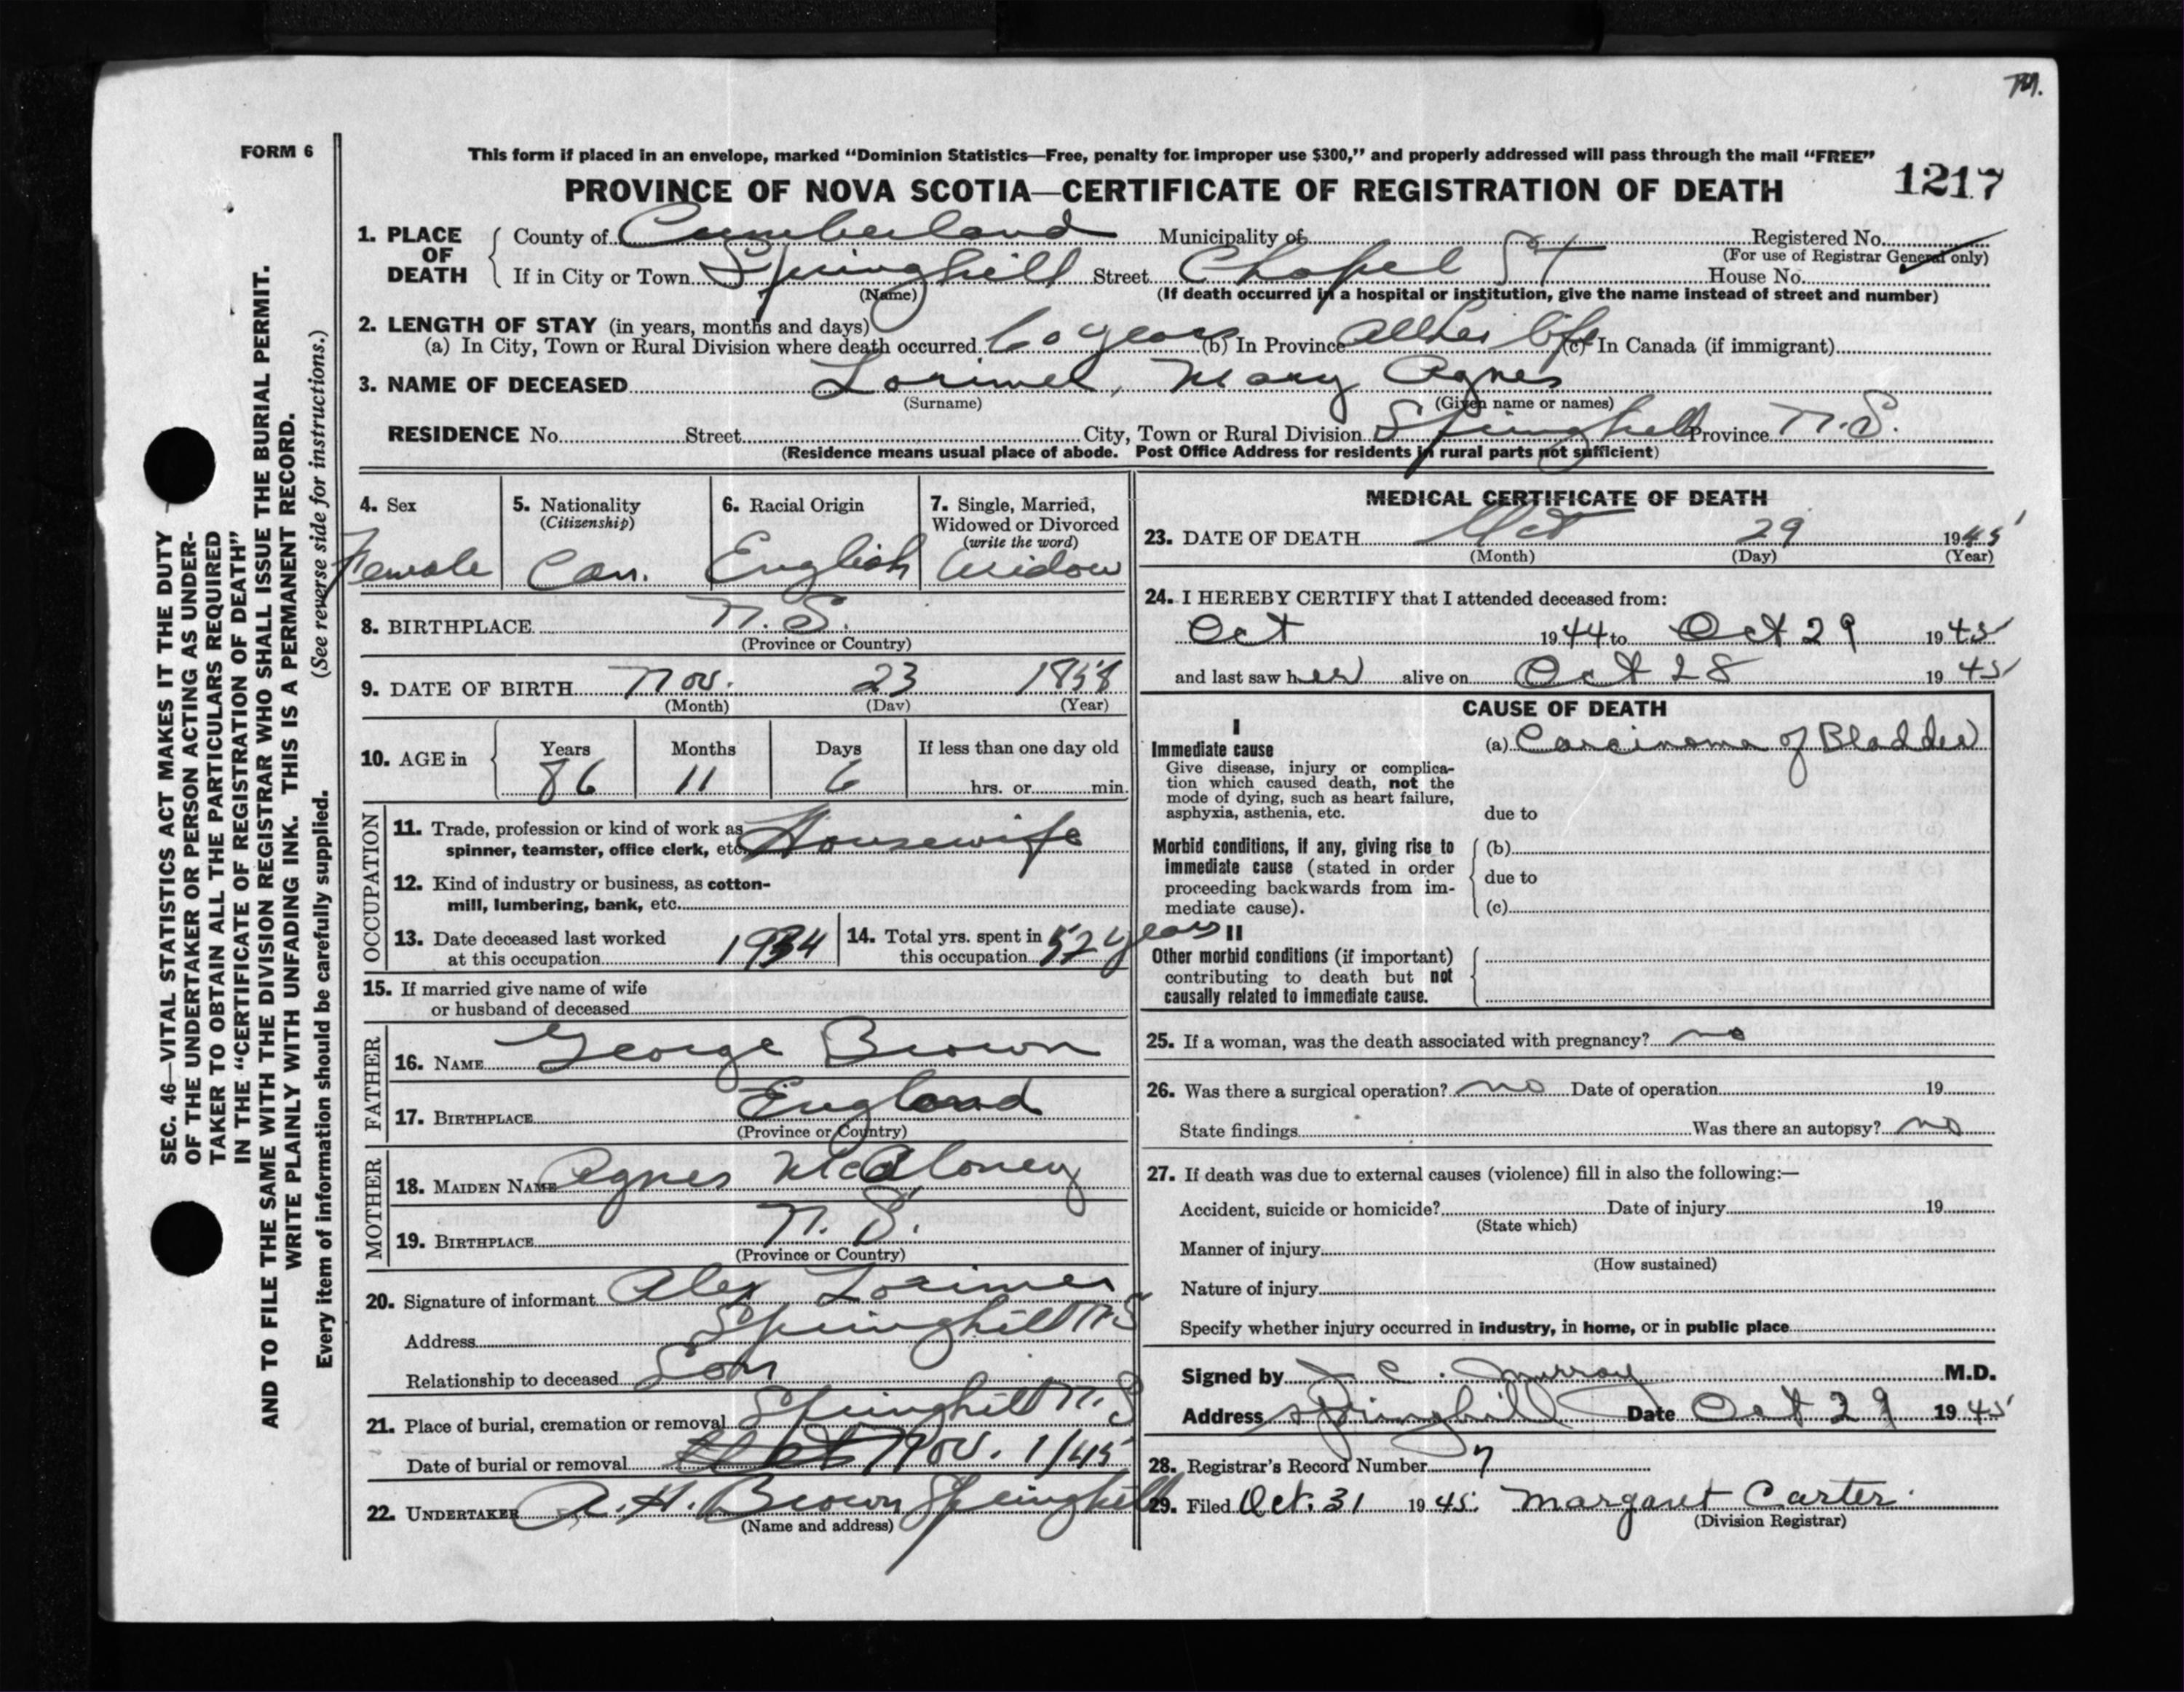 M.
FORM 6
This form if placed in an envelope, marked "Dominion Statistics—Free, penalty for improper use $300," and properly addressed will pass through the mail "FREE"
PROVINCE OF NOVA SCOTIA—CERTIFICATE OF REGISTRATION OF DEATH 1217
SEC. 46—VITAL STATISTICS ACT MAKES IT THE DUTY
OF THE UNDERTAKER OR PERSON ACTING AS UNDER-
TAKER TO OBTAIN ALL THE PARTICULARS REQUIRED
IN THE "CERTIFICATE OF REGISTRATION OF DEATH"
AND TO FILE THE SAME WITH THE DIVISION REGISTRAR WHO SHALL ISSUE THE BURIAL PERMIT.
WRITE PLAINLY WITH UNFADING INK. THIS IS A PERMANENT RECORD.
Every item of information should be carefully supplied. (See reverse side for instructions.)
1. PLACE OF DEATH
County of Cumberland Municipality of Registered No.
(For use of Registrar General only)
If in City or Town Springhill Street Chapel St House No.
(Name) (If death occurred in a hospital or institution, give the name instead of street and number)
2. LENGTH OF STAY (in years, months and days)
(a) In City, Town or Rural Division where death occurred 60 years (b) In Province All her life (c) In Canada (if immigrant)
3. NAME OF DECEASED Lorimer, Mary Agnes
(Surname) (Given name or names)
RESIDENCE No. Street City, Town or Rural Division Springhill Province N.S.
(Residence means usual place of abode. Post Office Address for residents in rural parts not sufficient)
4. Sex 5. Nationality (Citizenship) 6. Racial Origin 7. Single, Married, Widowed or Divorced (write the word)
Female Can. English Widow
8. BIRTHPLACE N.S.
(Province or Country)
9. DATE OF BIRTH Nov. 23 1858
(Month) (Day) (Year)
10. AGE in Years Months Days If less than one day old
86 11 6 hrs. or min.
OCCUPATION
11. Trade, profession or kind of work as
spinner, teamster, office clerk, etc. Housewife
12. Kind of industry or business, as cotton-
mill, lumbering, bank, etc.
13. Date deceased last worked
at this occupation 1934
14. Total yrs. spent in
this occupation 52 years
15. If married give name of wife
or husband of deceased
FATHER
16. NAME George Brown
17. BIRTHPLACE England
(Province or Country)
MOTHER
18. MAIDEN NAME Agnes McAloney
19. BIRTHPLACE N.S.
(Province or Country)
20. Signature of informant Alex Lorimer
Address Springhill N.S
Relationship to deceased Son
21. Place of burial, cremation or removal Springhill N.S
Date of burial or removal Nov. 1/45
22. UNDERTAKER A. H. Brown Springhill
(Name and address)
MEDICAL CERTIFICATE OF DEATH
23. DATE OF DEATH Oct 29 1945
(Month) (Day) (Year)
24. I HEREBY CERTIFY that I attended deceased from:
Oct 1944 to Oct 29 1945
and last saw her alive on Oct 28 1945
CAUSE OF DEATH
I
Immediate cause (a) Carcinoma of Bladder
Give disease, injury or complica-
tion which caused death, not the
mode of dying, such as heart failure,
asphyxia, asthenia, etc. due to
Morbid conditions, if any, giving rise to (b)
immediate cause (stated in order
proceeding backwards from im- due to
mediate cause). (c)
II
Other morbid conditions (if important)
contributing to death but not
causally related to immediate cause.
25. If a woman, was the death associated with pregnancy? no
26. Was there a surgical operation? no Date of operation 19
State findings Was there an autopsy? no
27. If death was due to external causes (violence) fill in also the following:—
Accident, suicide or homicide? Date of injury 19
(State which)
Manner of injury
(How sustained)
Nature of injury
Specify whether injury occurred in industry, in home, or in public place
Signed by J C. Murray M.D.
Address Springhill Date Oct 29 1945
28. Registrar's Record Number 7
29. Filed Oct. 31 1945. Margaret Carter.
(Division Registrar)